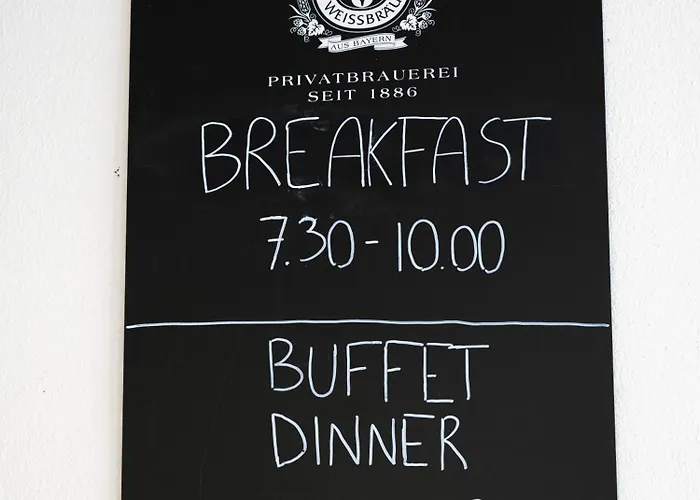 WEISSBRÄU
AUS BAYERN
PRIVATBRAUEREI
SEIT 1886
BREAKFAST
7.30 - 10.00
BUFFET
DINNER